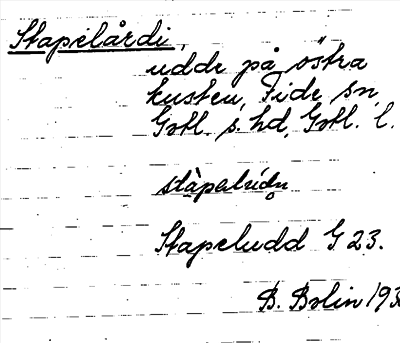 Stapelårdi,
udde på östra
kusten, Fide sn,
Gotl. s. hd, Gotl. l.
Stapeludd G 23.
B. Bolin 193